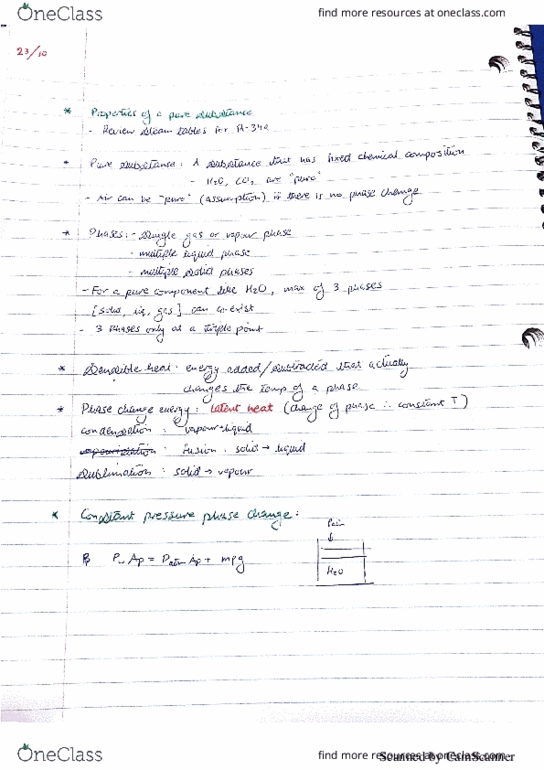 OneClass
find more resources at oneclass.com
23/10
* Properties of a pure substance
- Review steam tables for R-34a
* Pure substance: A substance that has fixed chemical composition
- H2O, CO2 are "pure"
- Air can be "pure" (assumption) if there is no phase change
* Phases: - Single gas or vapour phase
- multiple liquid phase
- multiple solid phases
- For a pure component like H2O, max of 3 phases
[solid, liq, gas] can co-exist
- 3 Phases only at a triple point
* Sensible heat: energy added/subtracted that actually
changes the temp of a phase
* Phase change energy: latent heat (change of phase ∴ constant T)
condensation: vapour→liquid
fusion: solid → liquid
Sublimation: solid → vapour
* Constant pressure phase change:
Patm
H2O
Ap = Patm Ap + mpg
OneClass
find more resources at oneclass.com
Scanned by CamScanner